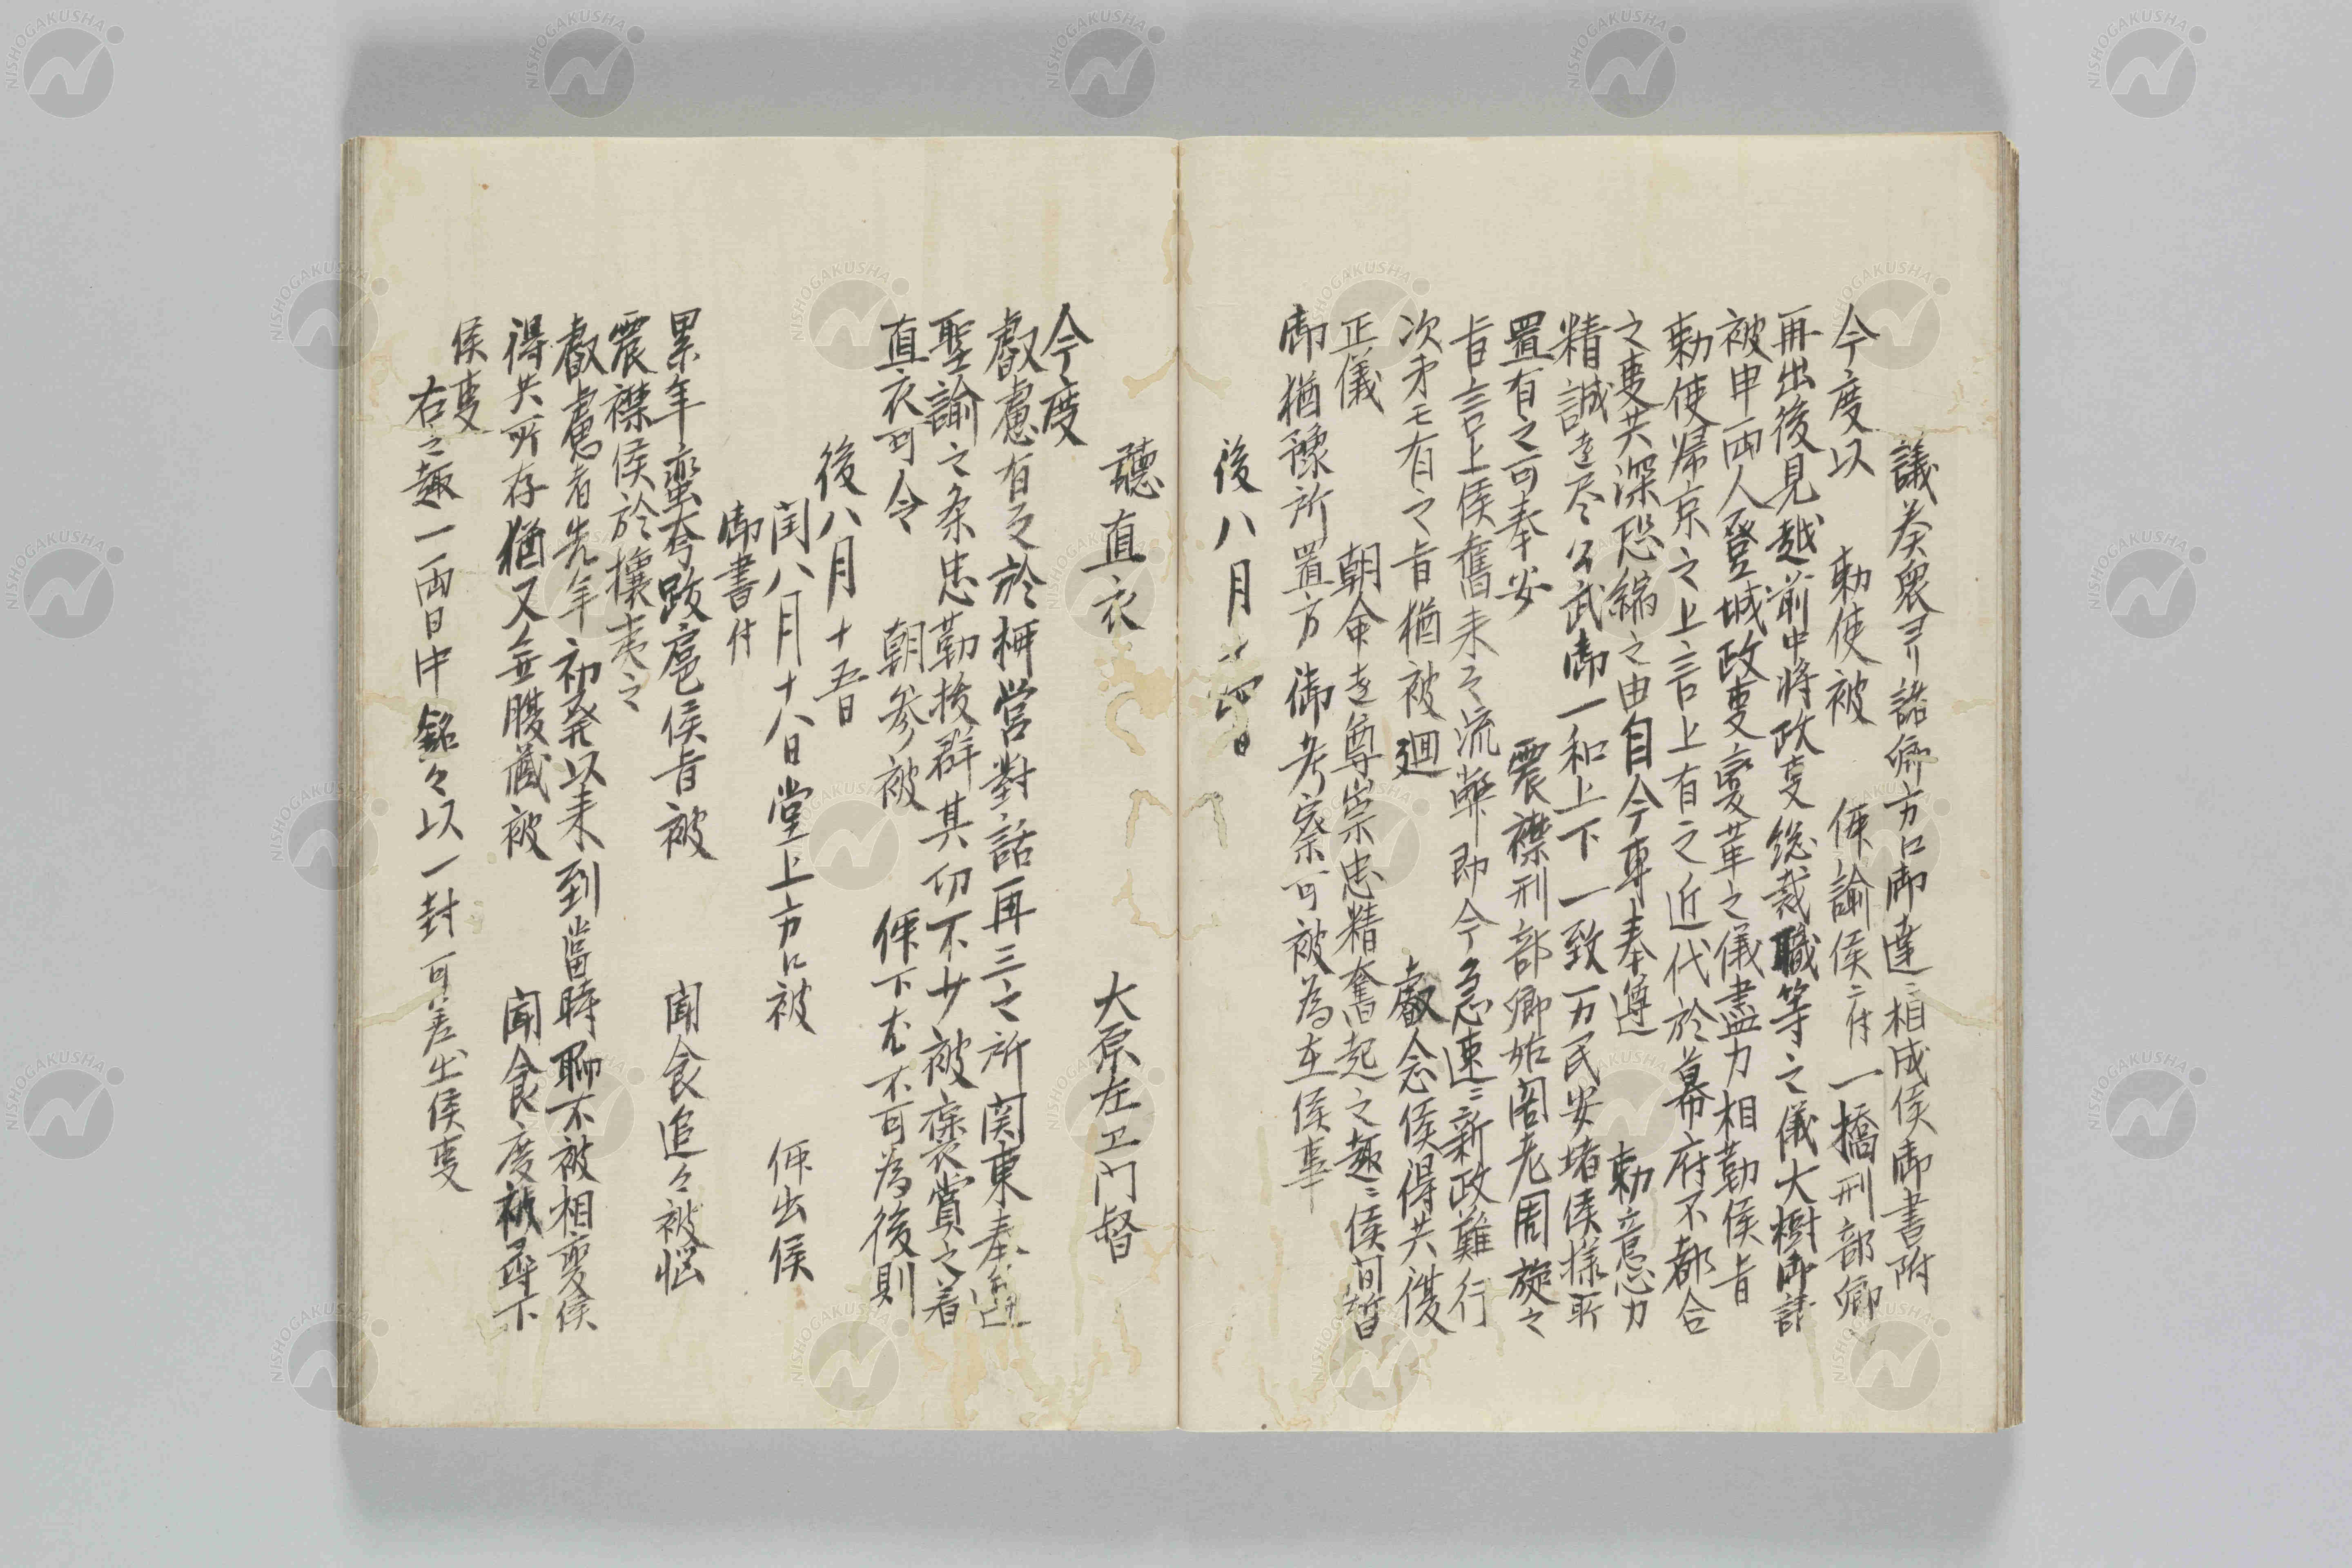 議奏衆ヨリ諸卿方江御達ニ相成候御書附
今度以　勅使被　仰諭候ニ付一橋刑部卿
再出後見越前中将政事総裁職等之儀大樹御請
被申両人登城政事変革之儀盡力相勤候旨
勅使帰京之上言上有之近代於幕府不都合
之事共深恐縮之由自今専奉遵　勅意心力
精誠を尽公武御一和上下一致万民安堵候様所
置有之可奉安　震襟刑部卿始閣老周旋之
旨言上候舊来之流弊即今急速ニ新政難行
次第モ有之旨猶被廻　叡念候得共復
正儀　朝命を尊崇忠精奮起之趣ニ候間暫
御猶豫所置方御考察可被為在候事
後八月十四日
聴直衣　大原左卫门督
今度
叡慮有之於柳営對話再三之所関東奉遵
聖諭之条忠勤抜群其功不少被褒賞之着
直衣可令　朝参被　仰下尤不可為後則
後八月十五日
閏八月十八日堂上方江被　仰出候
御書付
累年蛮夷跋扈候旨被　聞食追々被悩
震襟候於攘夷之
叡慮者先年初発以来到當時聊不被相変候
得共所存猶又無腹蔵被　聞食度被尋下
候事
右之趣一両日中銘々以一封可差出候事